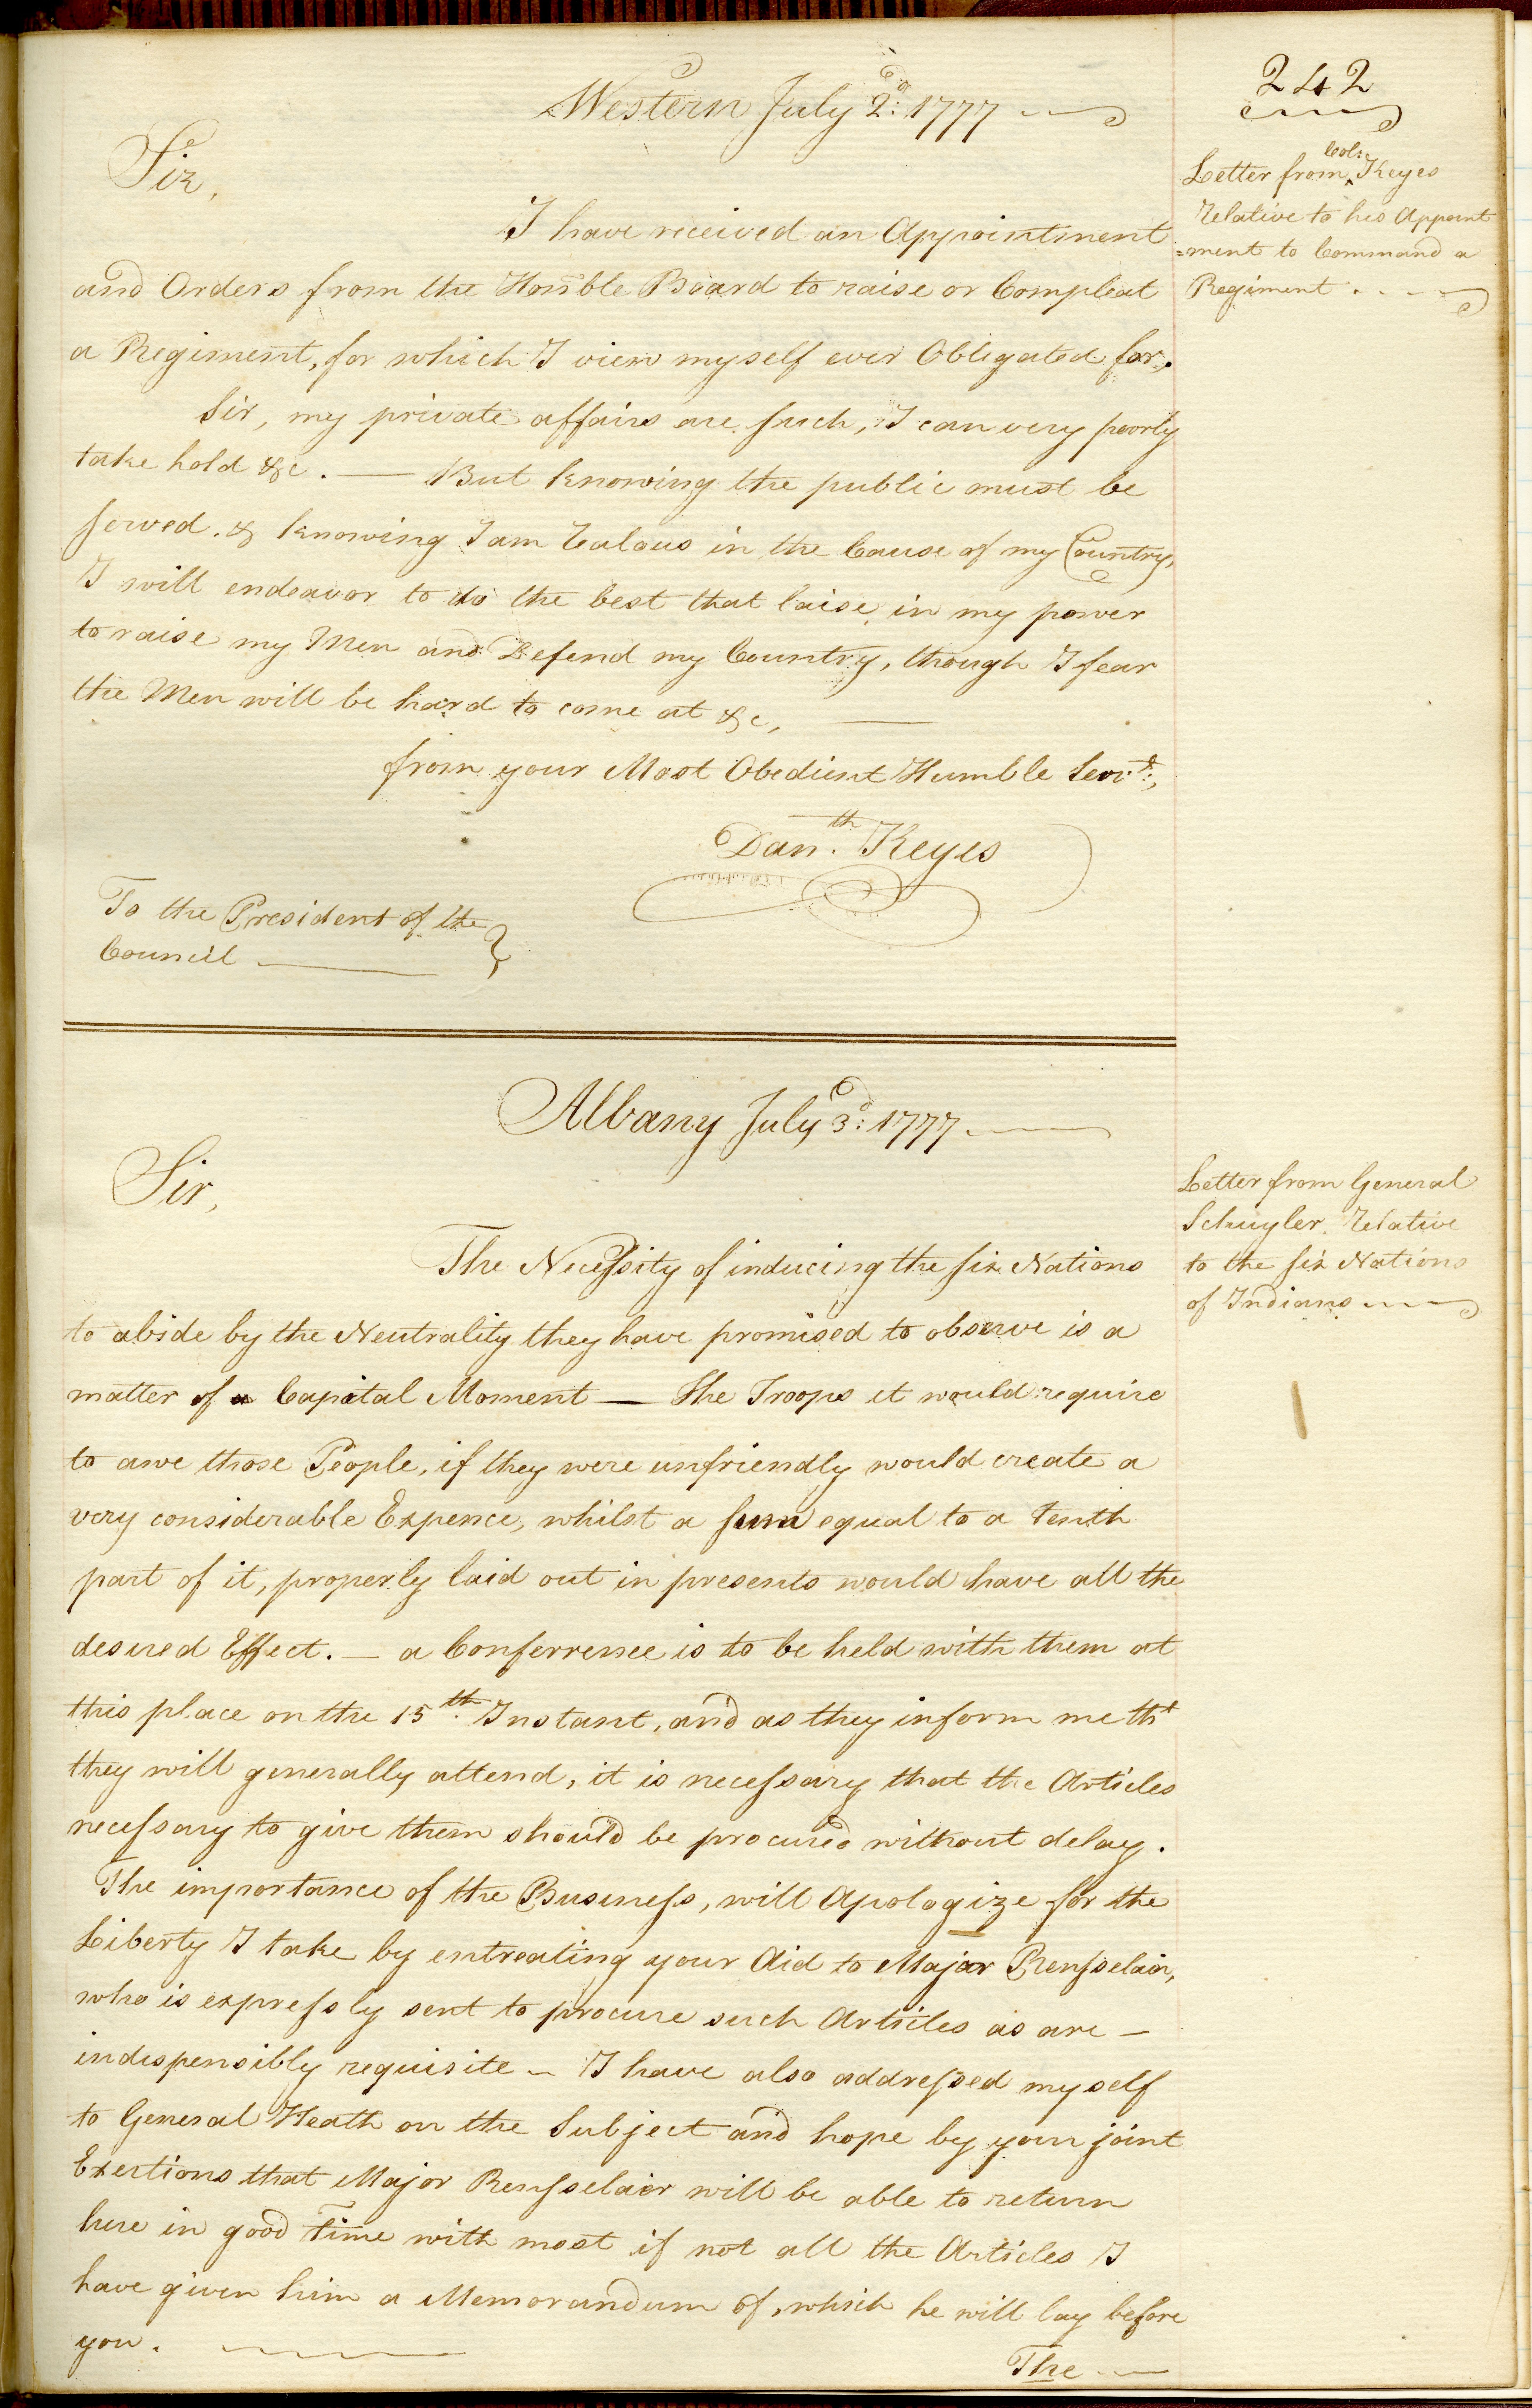 242
Western July 2d: 1777
Letter from Col: Keyes
Relative to his Appoint
=ment to Command a
Regiment
Sir,
I have received an Appointment
and Orders from the Honble Board to raise or Compleat
a Regiment, for which I view myself ever Obligated for,
Sir, my private affairs are such, I can very poorly
take hold &c. — But knowing the public must be
served. & knowing I am Zealous in the Cause of my Country,
I will endeavor to do the best that laise in my power
to raise my Men and Defend my Country, though I fear
the Men will be hard to come at &c,
from your Most Obedient Humble Servt:,
Danth. Keyes
To the President of the
Council
Albany July 3d: 1777.
Letter from General
Schuyler, Relative
to the six Nations
of Indians
Sir,
The Necessity of inducing the six Nations
to abide by the Neutrality they have promised to observe is a
matter of a Capital Moment — The Troops it would require
to awe those People, if they were unfriendly would create a
very considerable Expence, whilst a sum equal to a tenth
part of it, properly laid out in presents would have all the
desired Effect. — a Conferrence is to be held with them at
this place on the 15th. Instant, and as they inform me tht
they will generally attend, it is necessary that the Articles
necessary to give them should be procured without delay.
The importance of the Business, will Apologize for the
Liberty I take by entreating your Aid to Major Rensselair,
who is expressly sent to procure such Articles as are —
indispensibly requisite – I have also addressed myself
to General Heath on the Subject and hope by your joint
Exertions that Major Rensselair will be able to return
here in good Time with most if not all the Articles I
have given him a Memorandum of, which he will lay before
you.
The